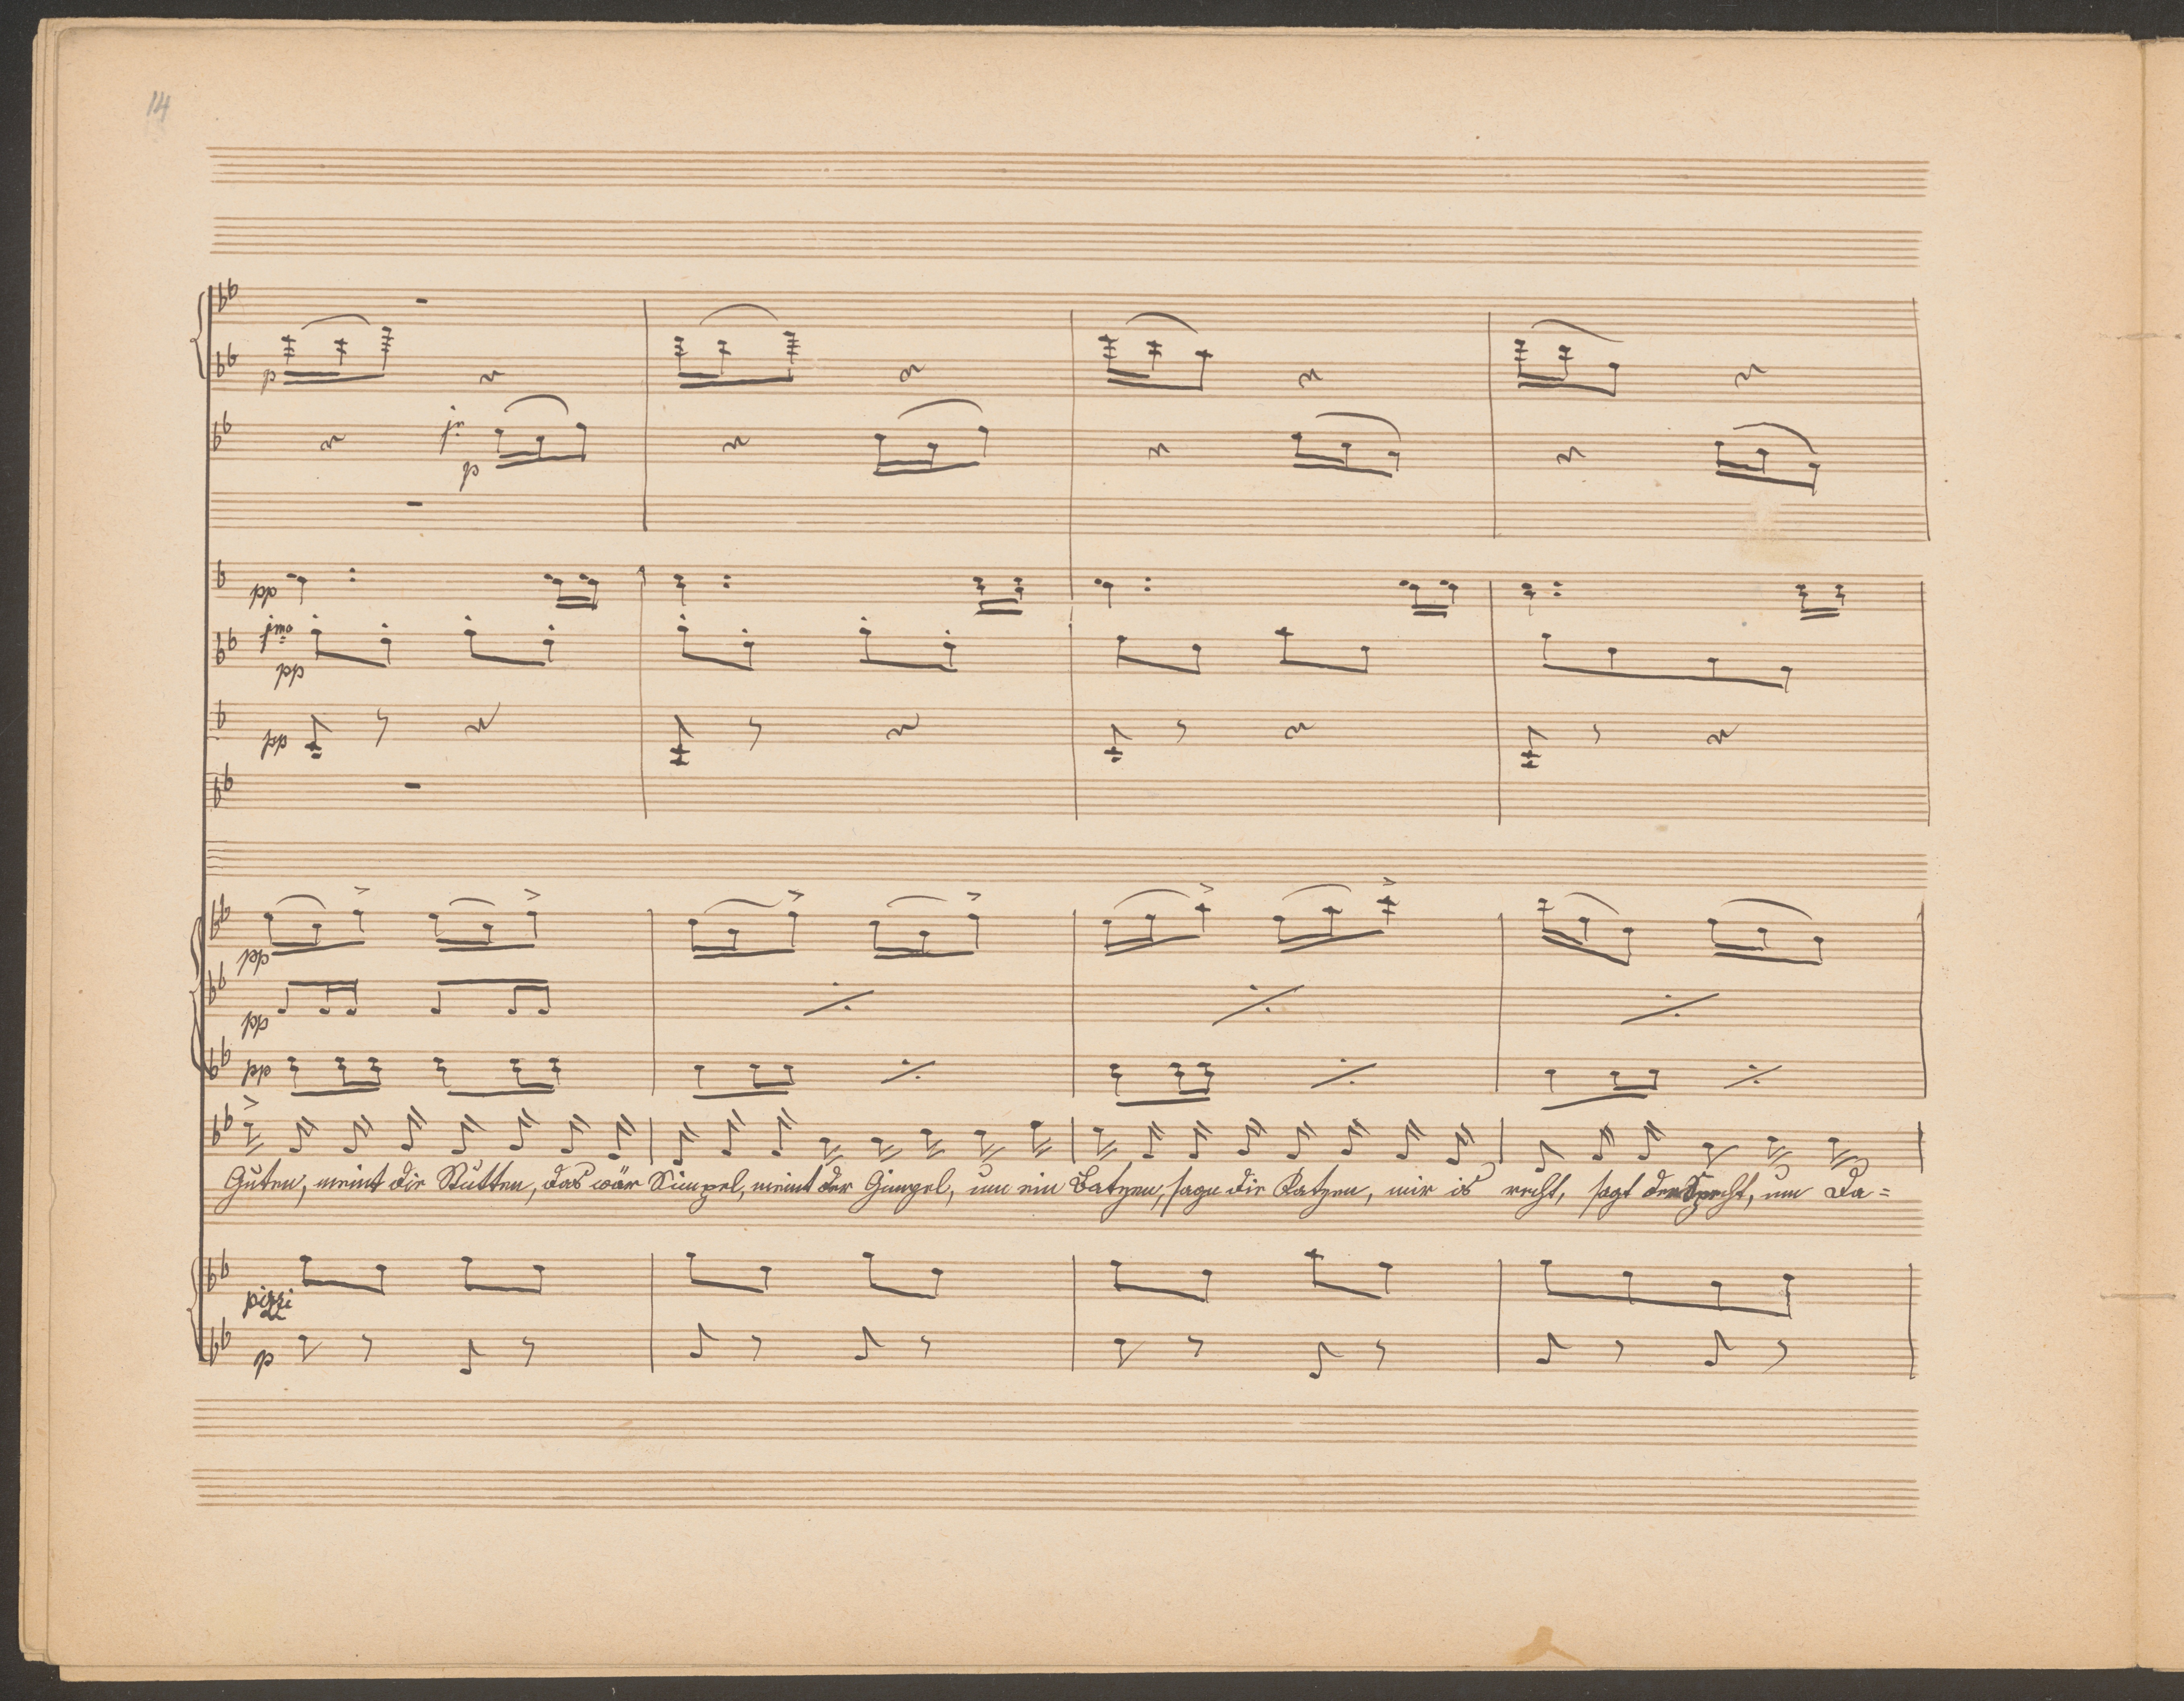 14
p
jo
p
pp
jmo
pp
pp
pp
pp
pp
Guten, meint die Stutten, das wär Simpel, meint der Gimpel, um ein Batzen, sagn die Katzen, mir is recht, sagt der Specht, um Da=
pizzi
p